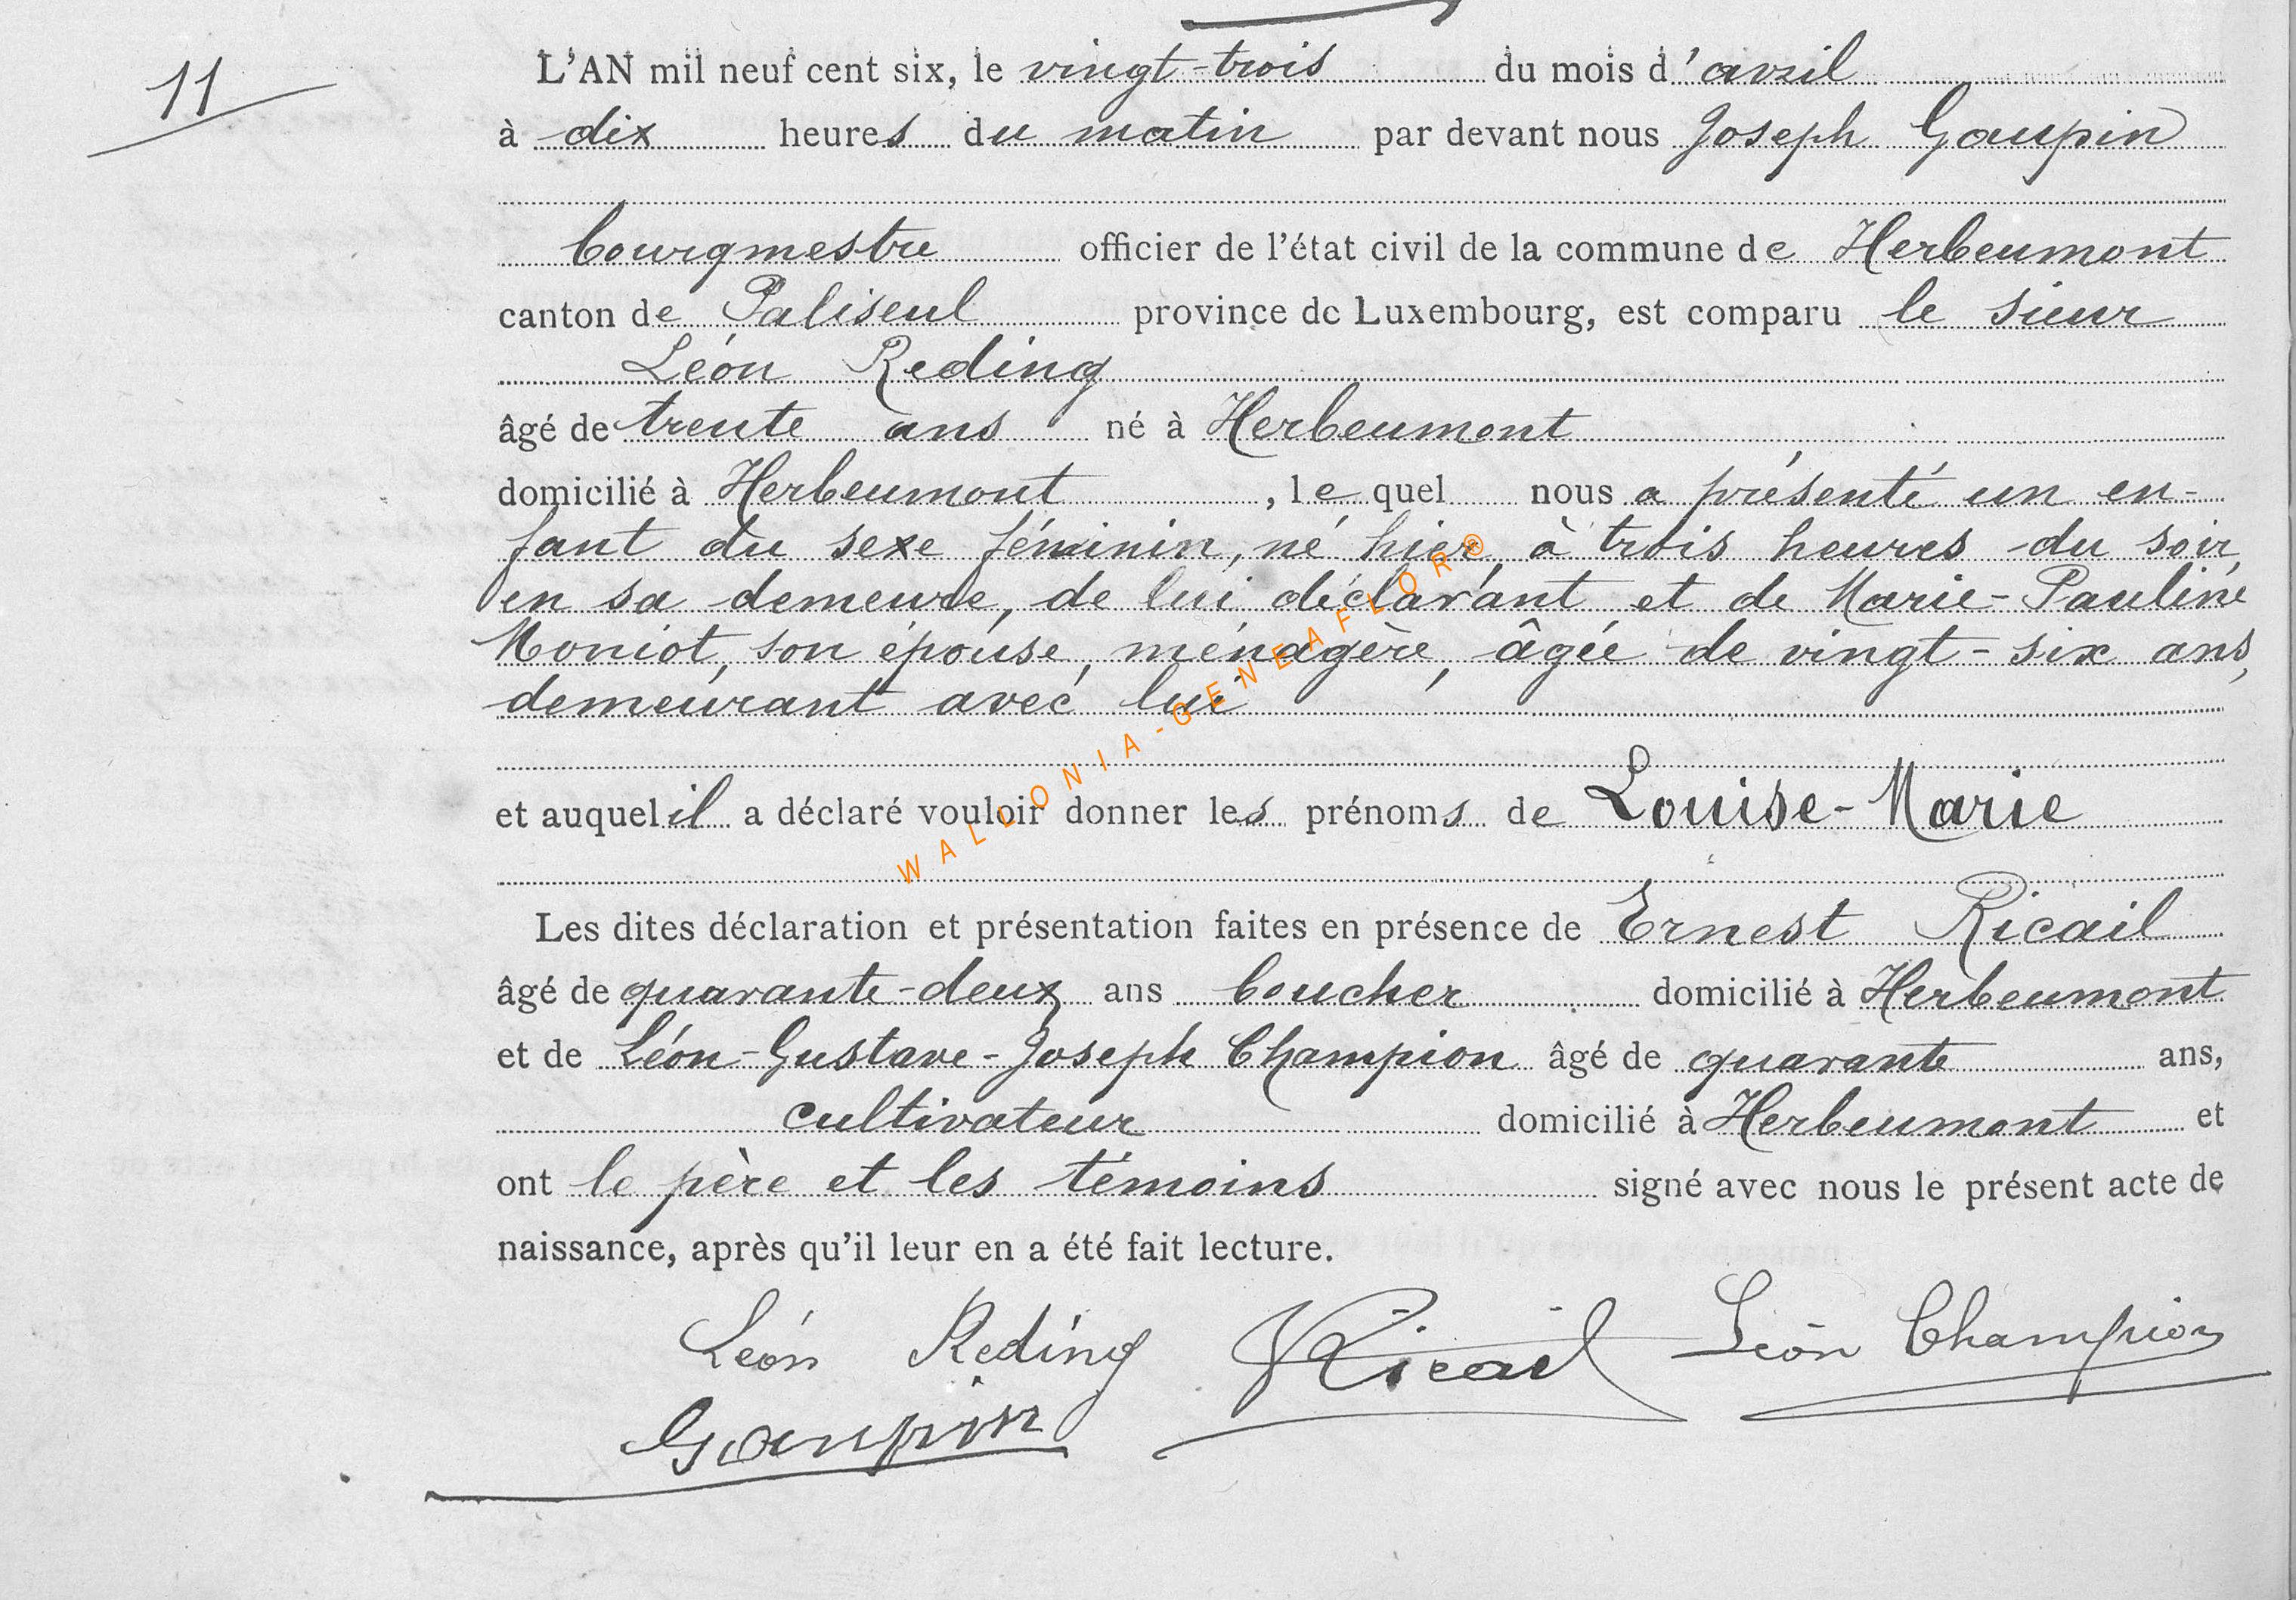 11
L'AN mil neuf cent six, le vingt-trois du mois d'avril
à dix heures du matin par devant nous Joseph Gaupin
bourgmestre officier de l'état civil de la commune de Herbeumont
canton de Paliseul province de Luxembourg, est comparu le sieur
Léon Reding
âgé de trente ans né à Herbeumont
domicilié à Herbeumont, lequel nous a présenté un en-
fant du sexe féminin, né hier, à trois heures du soir,
en sa demeure, de lui déclarant et de Marie-Pauline
Moniot, son épouse, ménagère, âgée de vingt-six ans,
demeurant avec lui
et auquel il a déclaré vouloir donner les prénoms de Louise-Marie
WALLONIA-GENEAFLOR®
Les dites déclaration et présentation faites en présence de Ernest Ricail
âgé de quarante-deux ans boucher domicilié à Herbeumont
et de Léon-Gustave-Joseph Champion âgé de quarante ans,
cultivateur domicilié à Herbeumont et
ont le père et les témoins signé avec nous le présent acte de
naissance, après qu'il leur en a été fait lecture.
Léon Reding Ricail Léon Champion
Gaupin